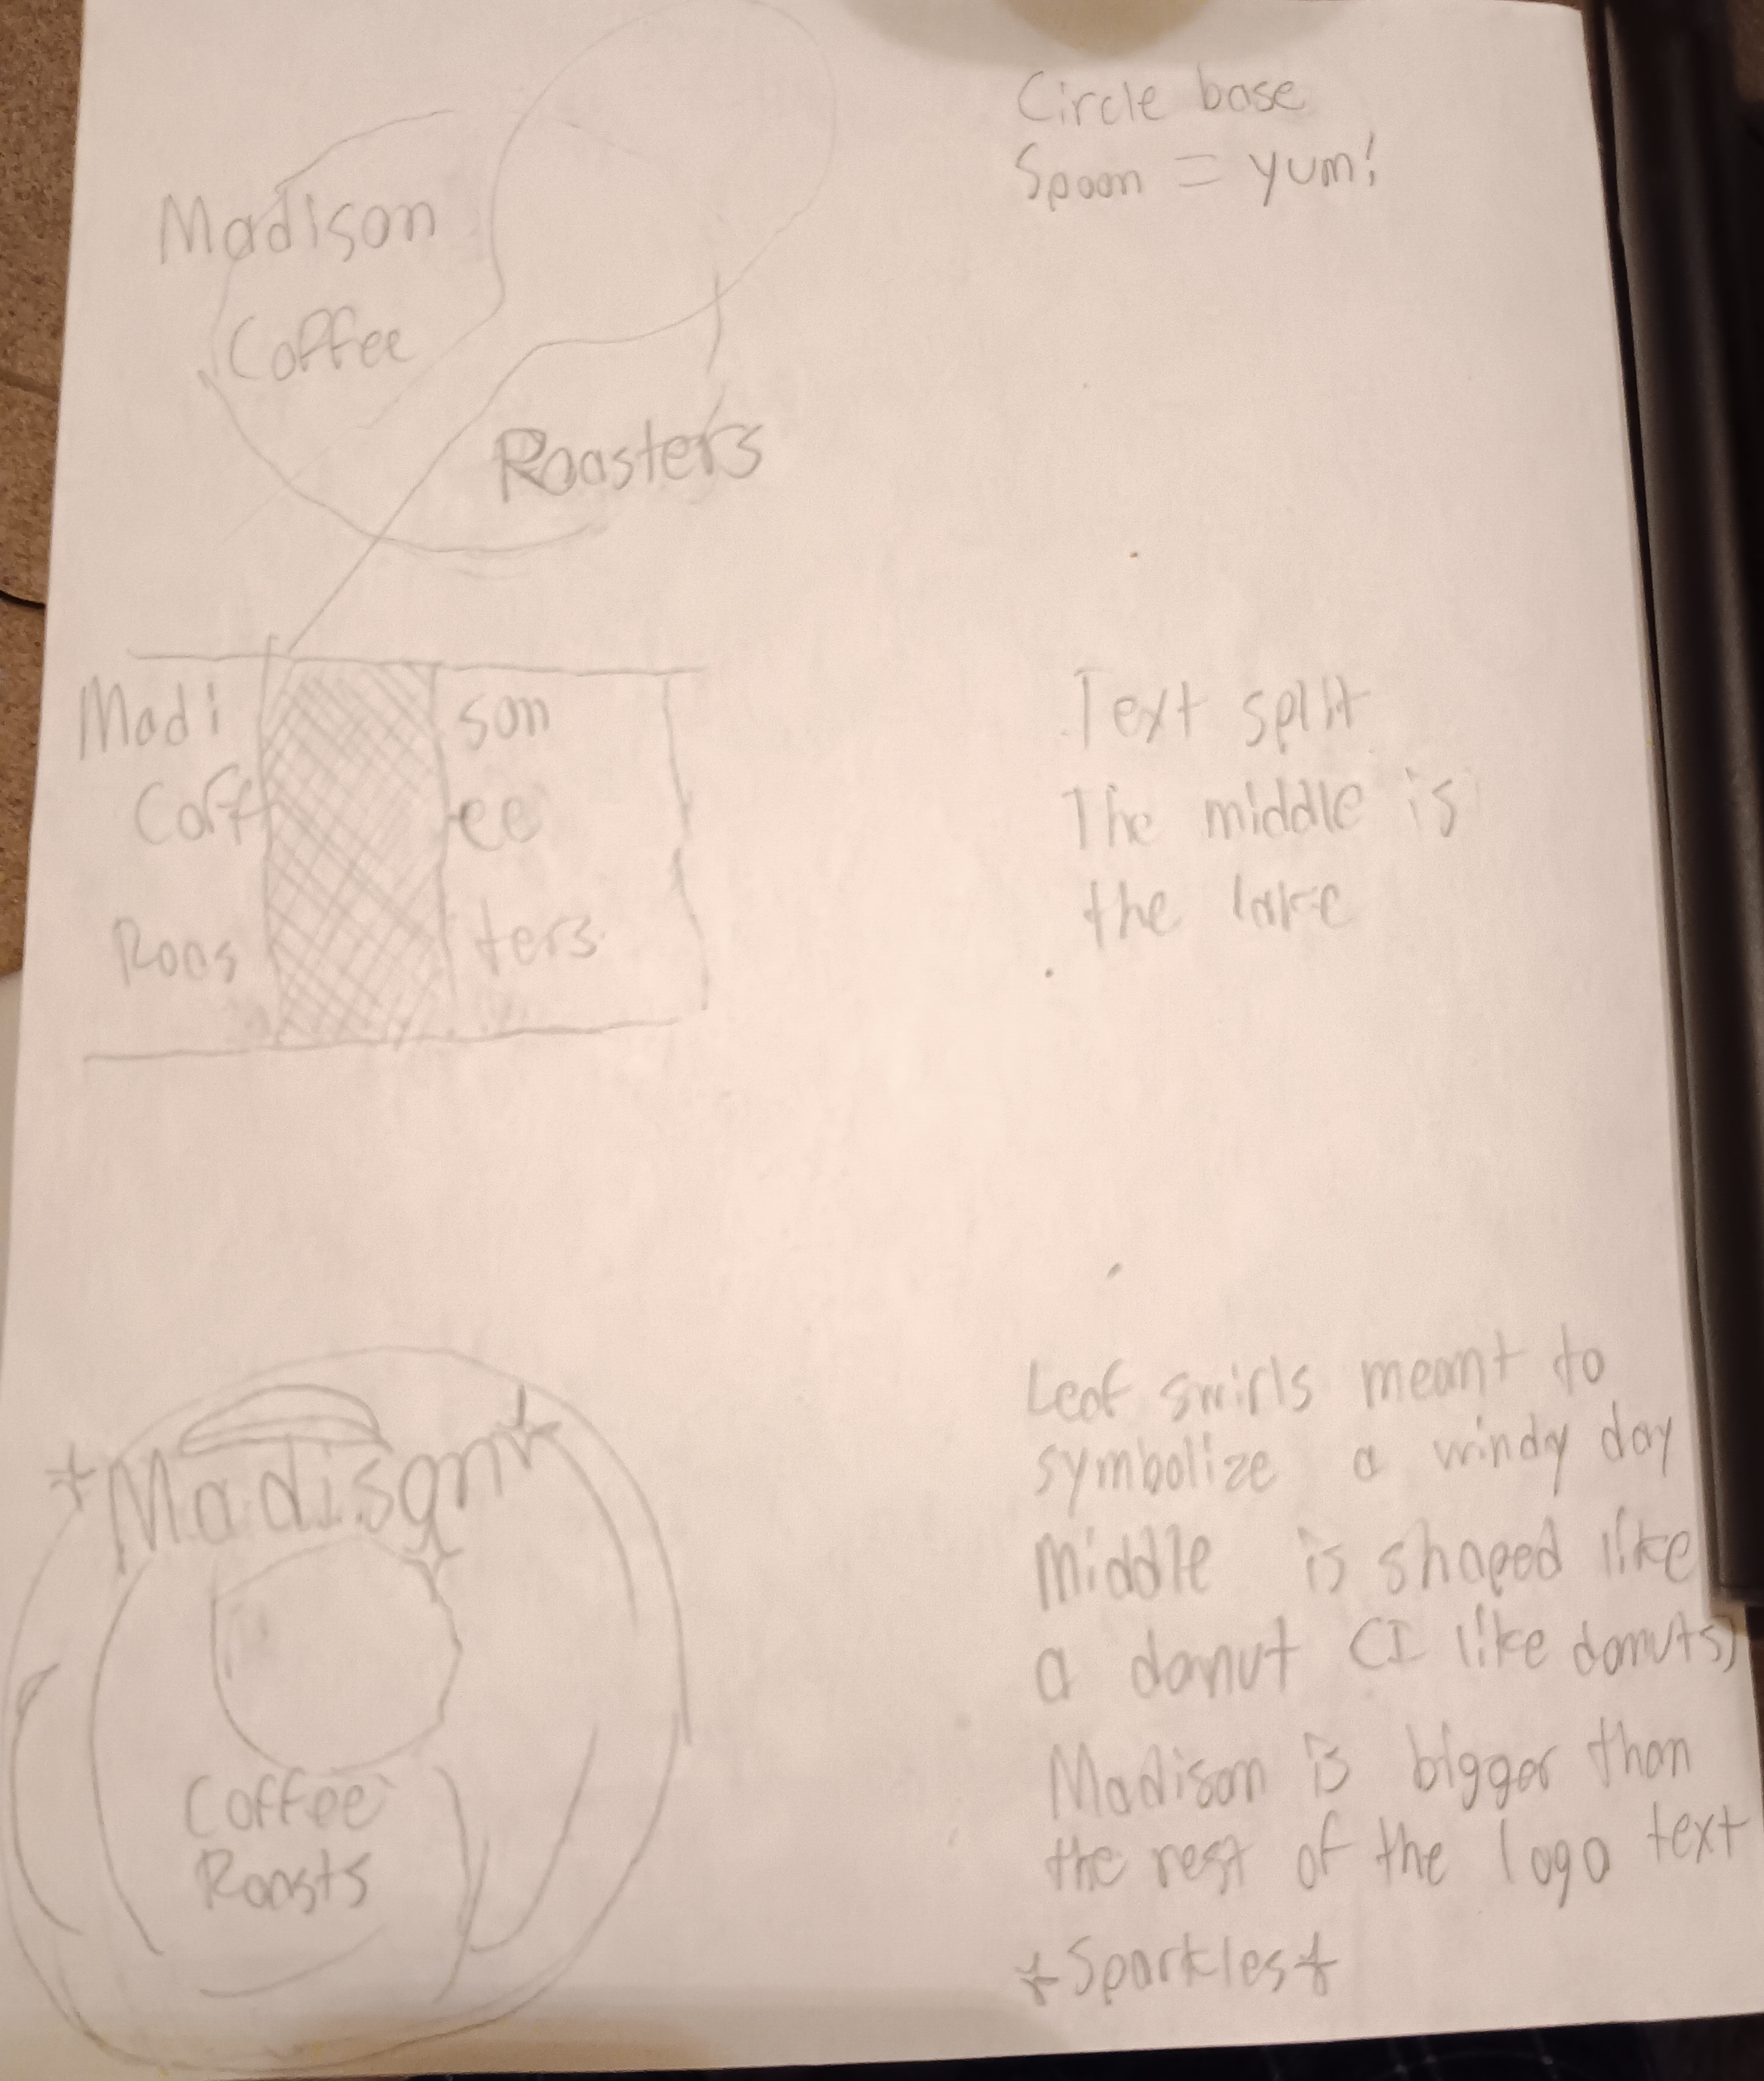 Circle base
Spoon = yum!
Madison
Coffee
Roasters
Madi son
Coff ee
Roas ters
Text split
The middle is
the lake
*Madison*
Coffee
Roasts
Leaf swirls meant to
symbolize a windy day
Middle is shaped like
a donut (I like donuts)
Madison is bigger than
the rest of the logo text
*Sparkles*